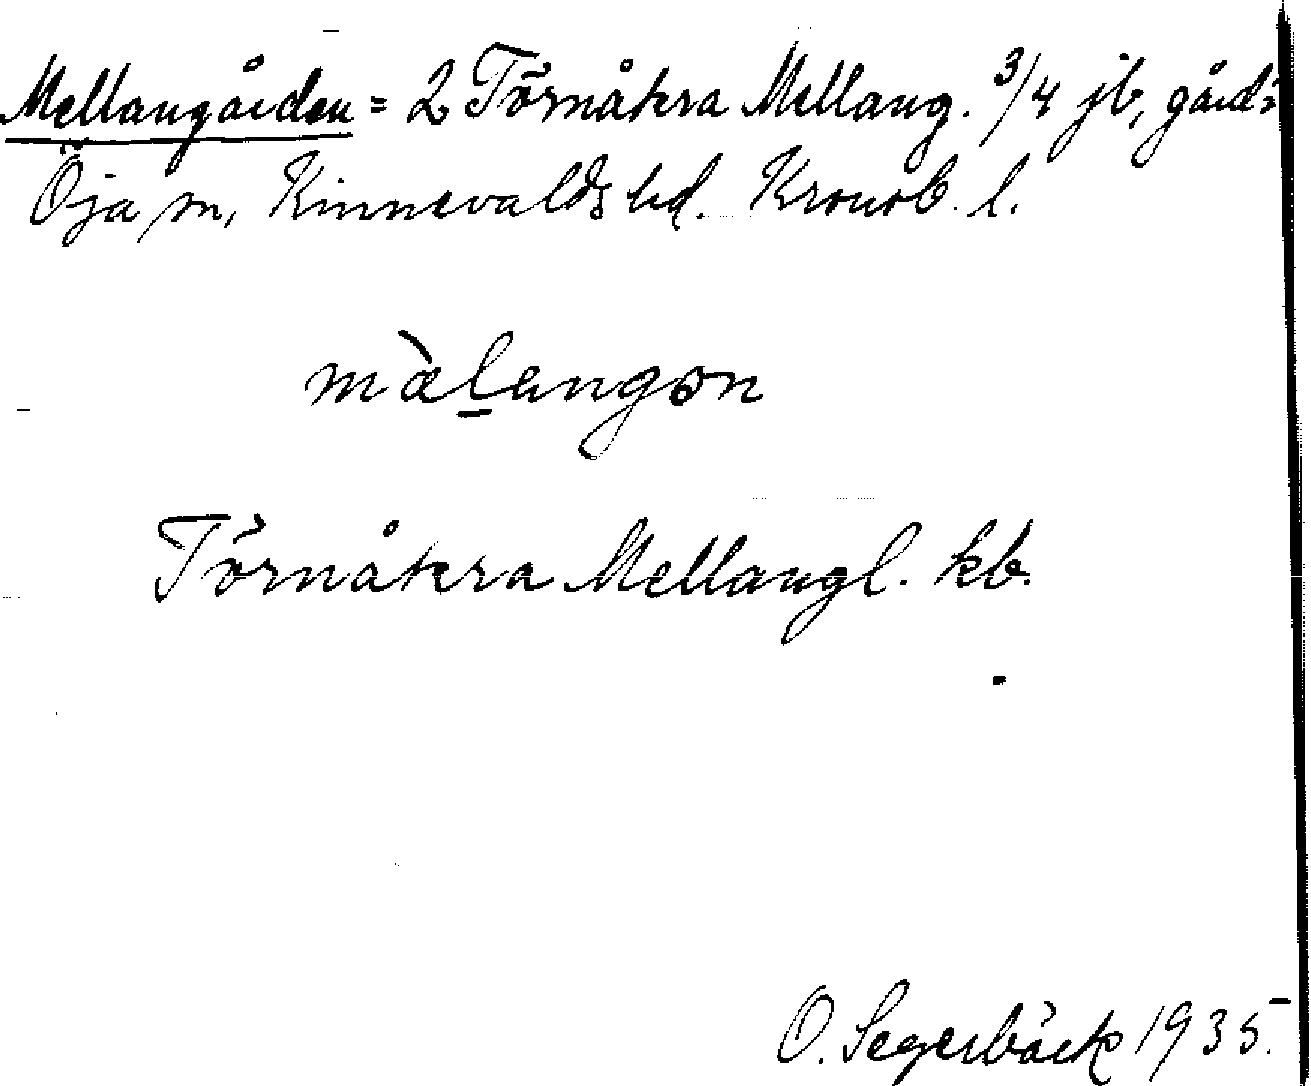 Mellangården = 2 Törnåkra Mellang. 3/4 jb, gård i
Öja sn, Kinnevalds hd. Kronob. l.
màlangon
Törnåkra Mellangl. kb.
O. Segerbäck 1935.